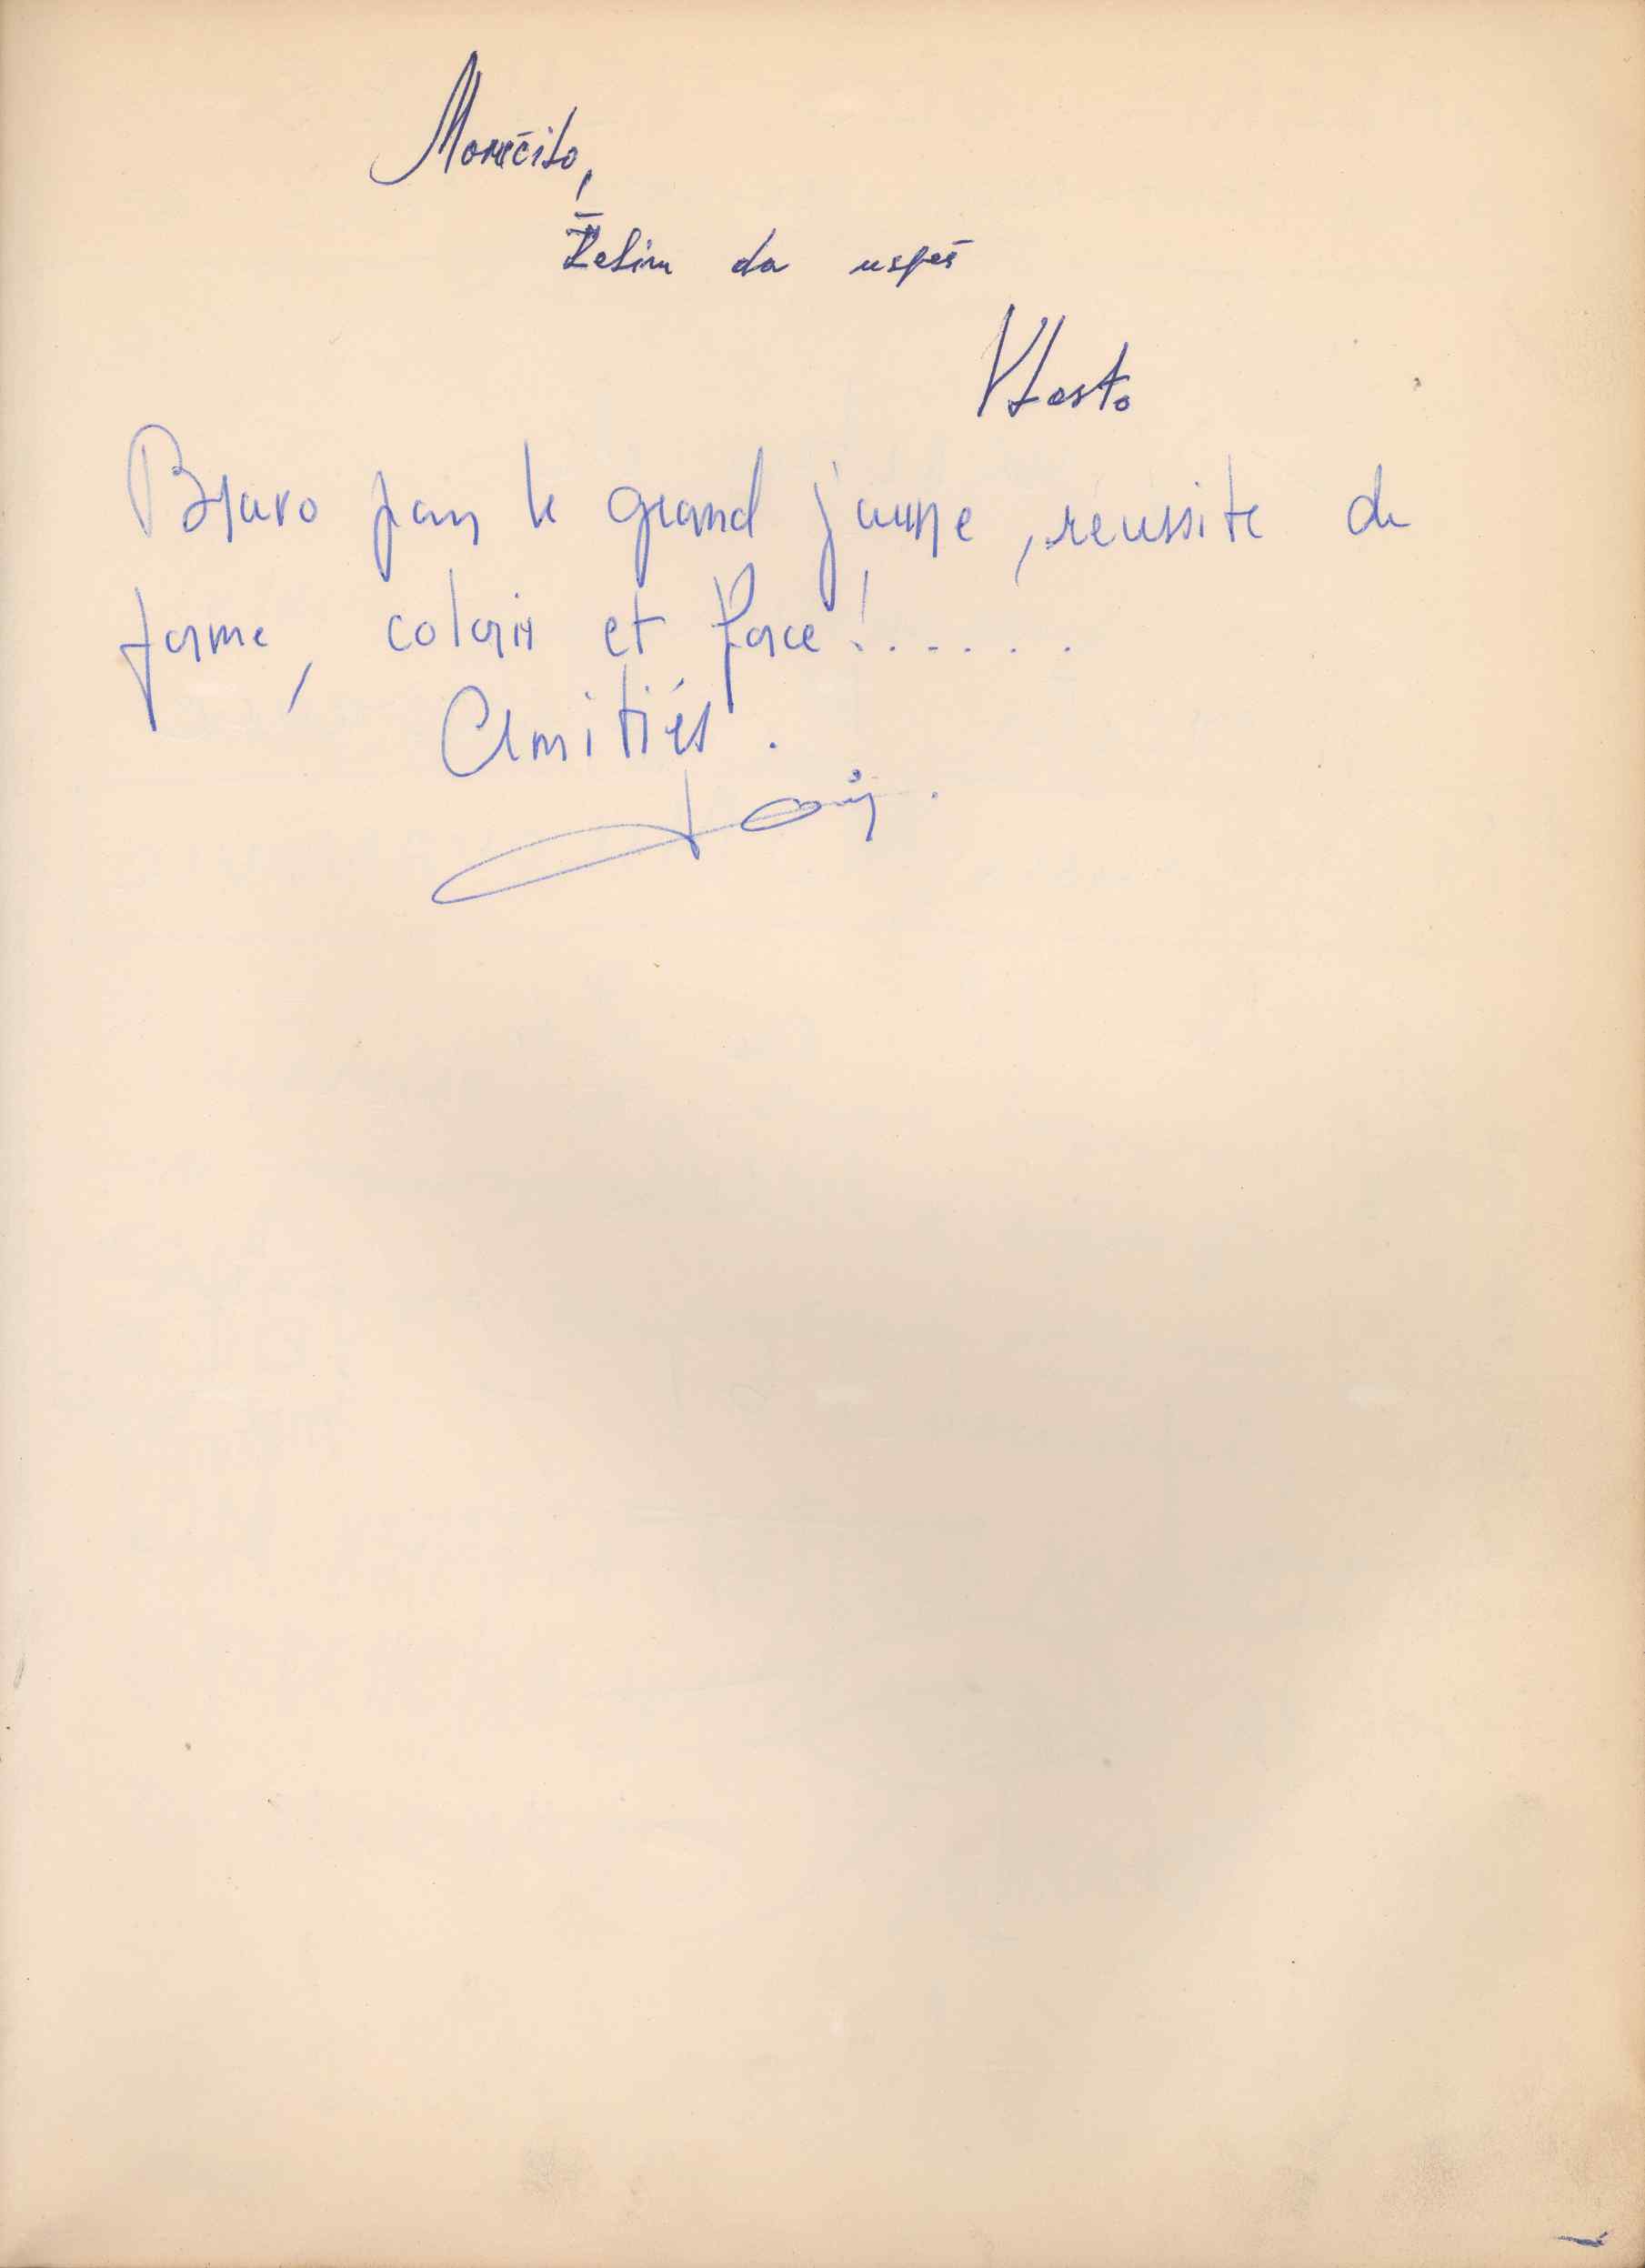 Momčilo,
Želim da uspeš
Vlasto
Bravo pour le grand jaune, reussite de
forme, coloris et force!......
Amitiés.